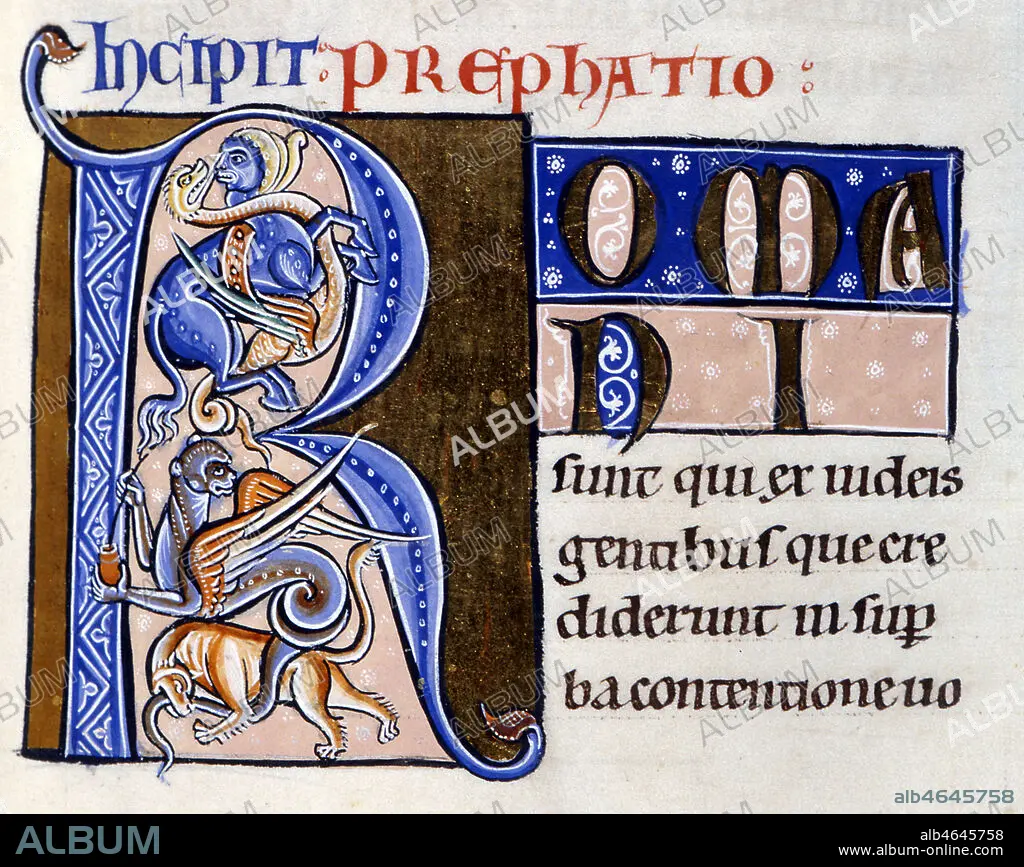 Incipit: prephatio:
ROMA
NI
sunt qui ex iudeis
gentibus que cre
diderunt in suꝑ
ba contentione uo
alb4645758
ALBUM
alb4645758
album-online.com